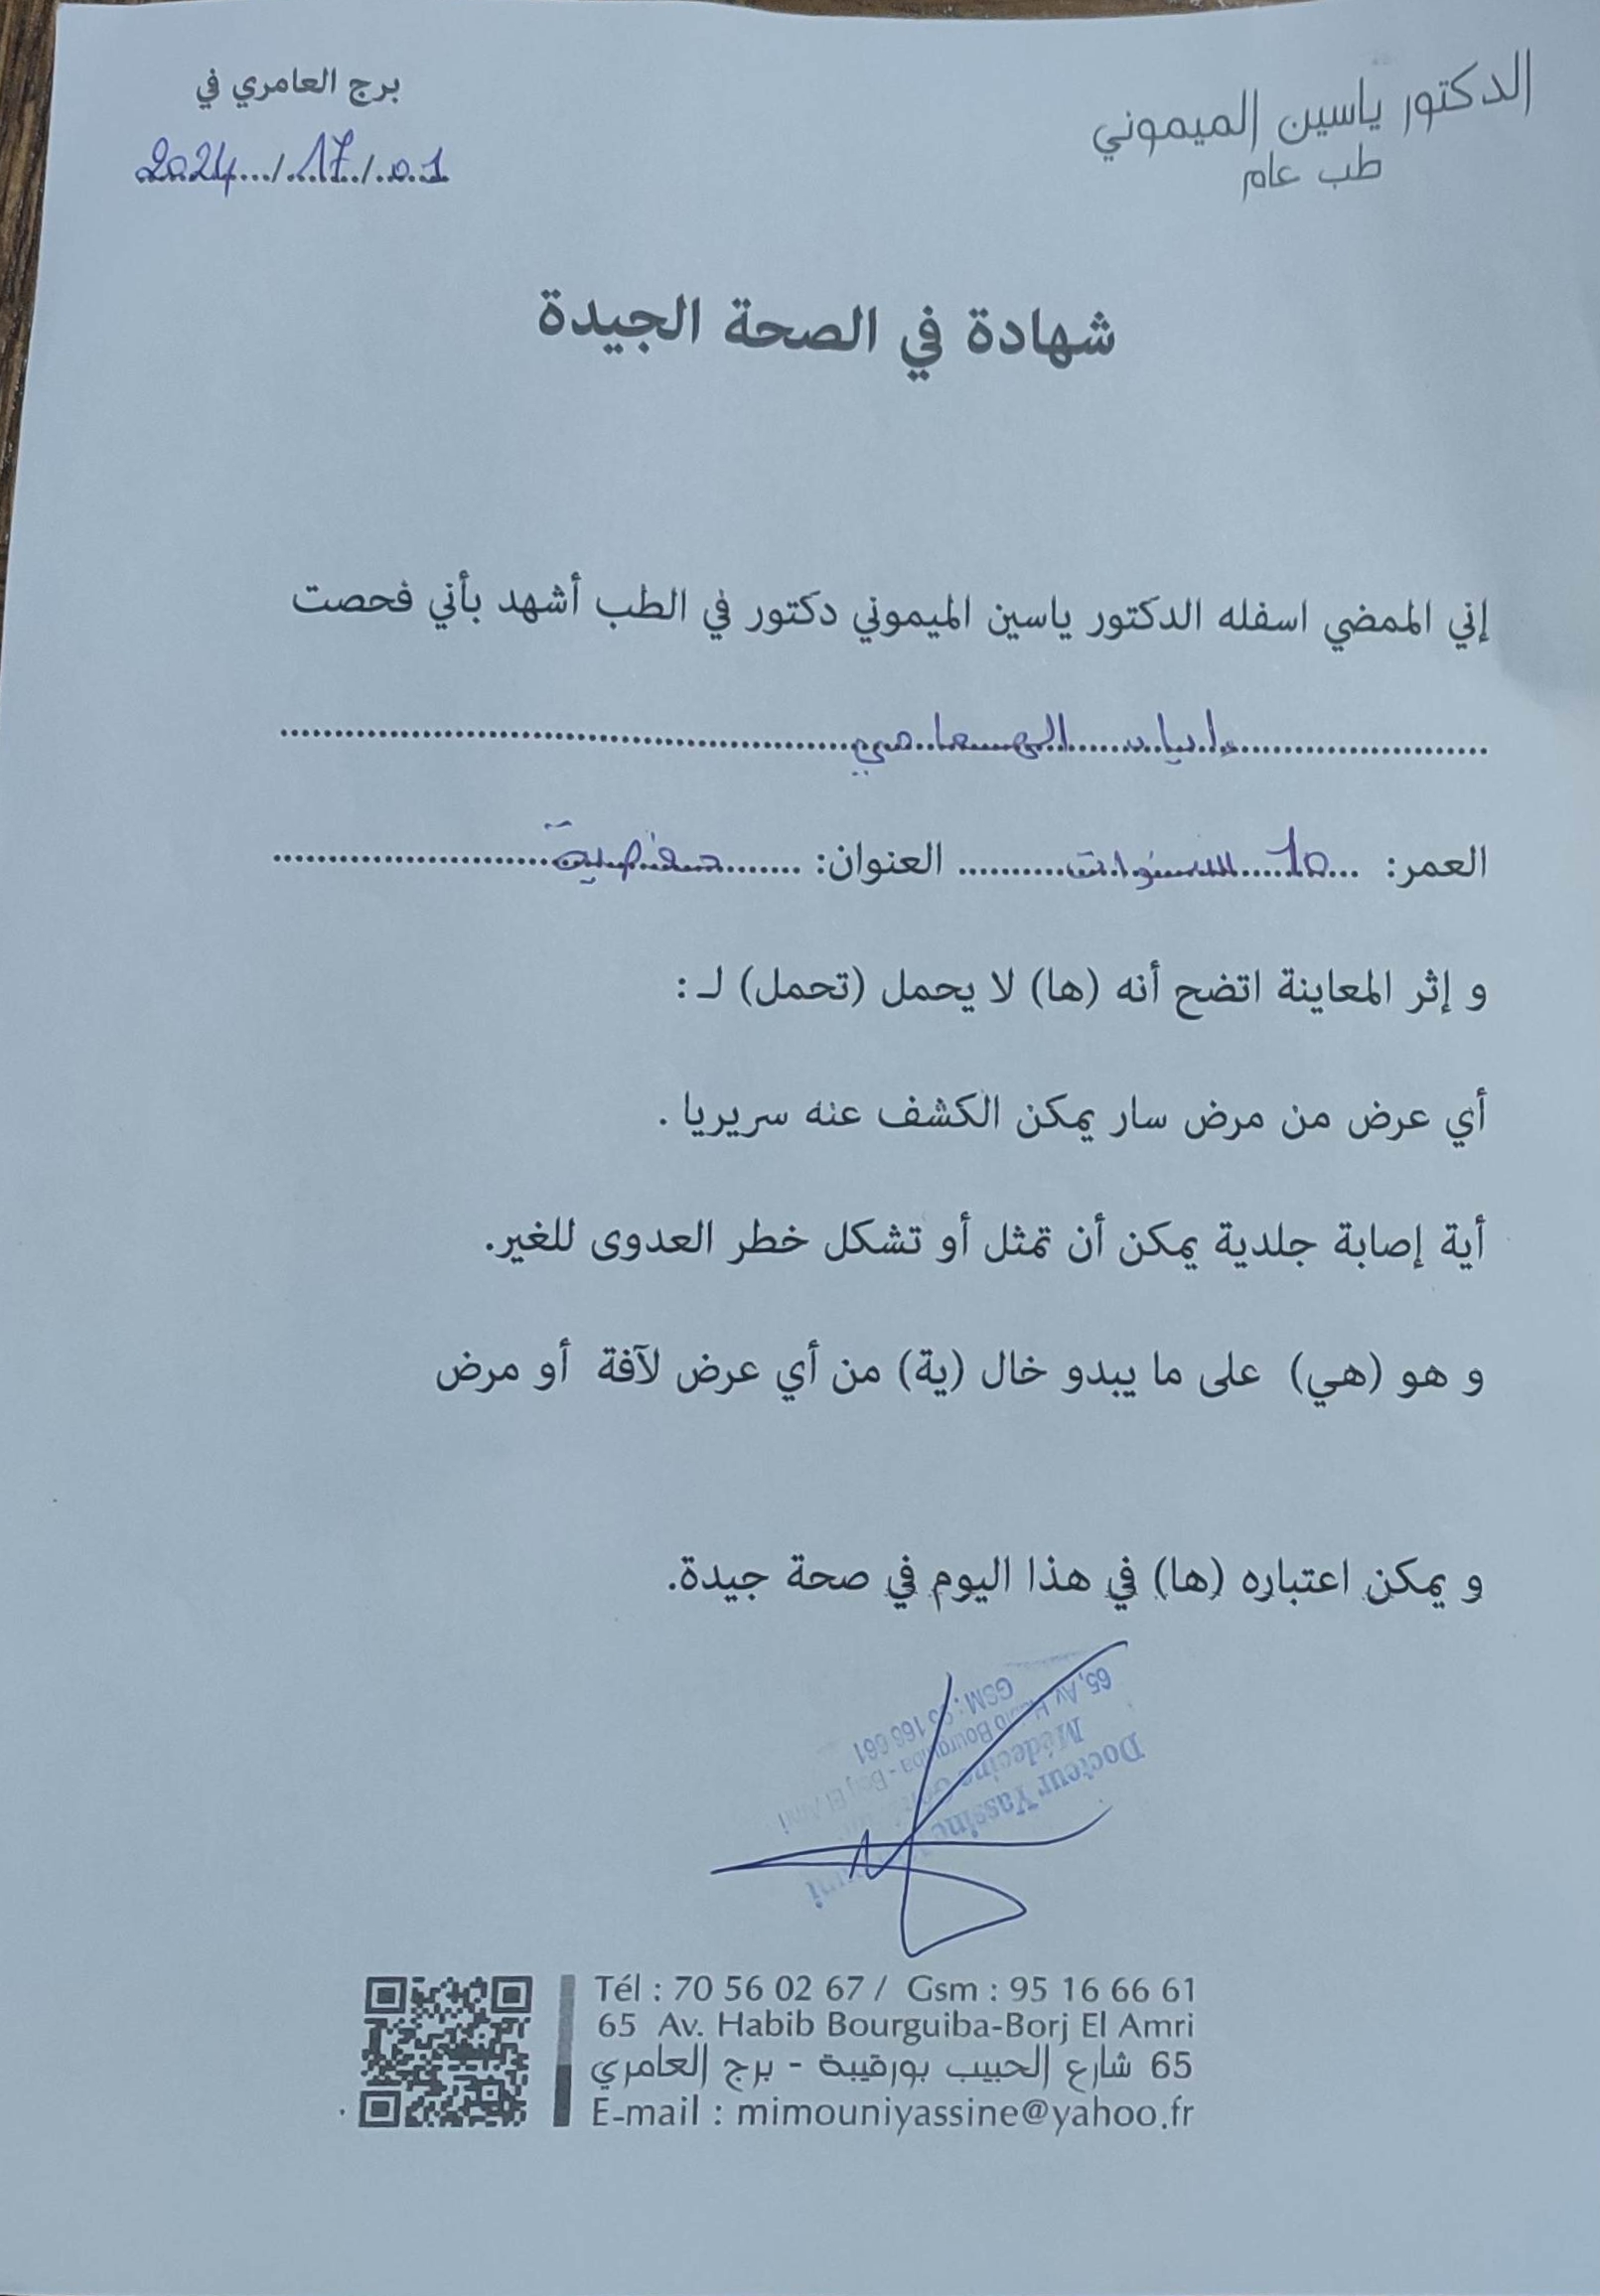 الدكتور ياسين الميموني
طب عام
برج العامري في
2024/17/01
شهادة في الصحة الجيدة
إني الممضي اسفله الدكتور ياسين الميموني دكتور في الطب أشهد بأني فحصت
العمر: 10 سنوات العنوان:
و إثر المعاينة اتضح أنه (ها) لا يحمل (تحمل) لـ :
أي عرض من مرض سار يمكن الكشف عنه سريريا .
أية إصابة جلدية يمكن أن تمثل أو تشكل خطر العدوى للغير.
و هو (هي) على ما يبدو خال (ية) من أي عرض لآفة أو مرض
و يمكن اعتباره (ها) في هذا اليوم في صحة جيدة.
Docteur Yassine
Médecine
65, Av. Bourguiba - Borj El Amri
GSM : 95 166 661
Tél : 70 56 02 67 / Gsm : 95 16 66 61
65 Av. Habib Bourguiba-Borj El Amri
65 شارع الحبيب بورقيبة - برج العامري
E-mail : mimouniyassine@yahoo.fr